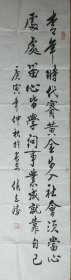 青年時代賽黃金步入社會須當心
處處留心皆學問事業成就靠自己
庚寅年仲秋於安侯志